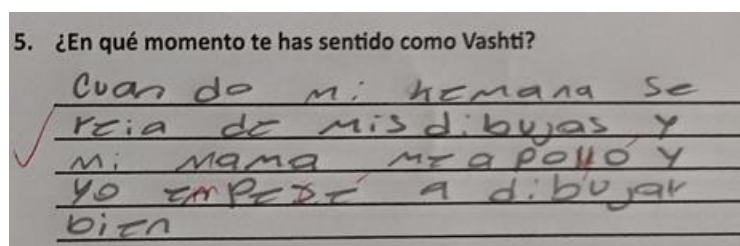 5. ¿En qué momento te has sentido como Vashti?
Cuan do mi hemana se
reia de mis dibujas y
mi mama me apolló y
yo empesé a dibujar
bien